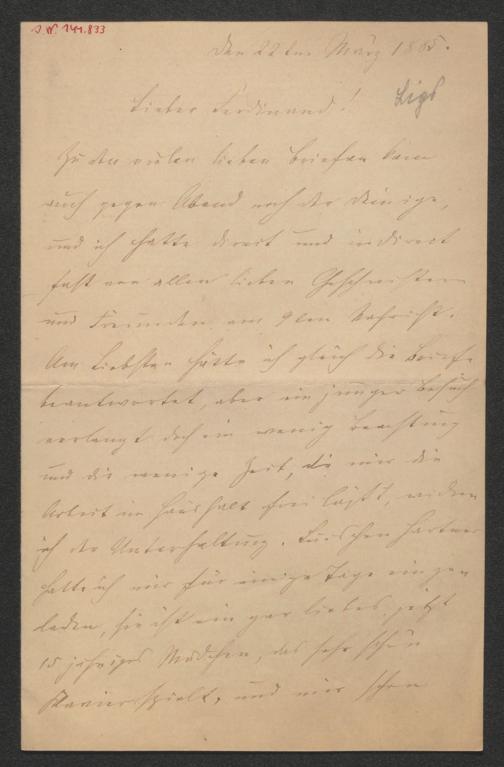 J.N. 141.833
den 22ten März 1885.
Lieber Ferdinand!
Zu den vielen lieben Briefen kam
auch gegen Abend noch der deinige,
und ich hatte direct und indirect
fast von allen lieben Geschwistern
und Freunden am 9ten Nachricht.
Am Liebsten hätte ich gleich die Briefe
beantwortet, aber ein junger Besuch
verlangt doch ein wenig Beachtung
und die wenige Zeit, die mir die
Arbeit im Haushalt frei läßt, widme
ich der Unterhaltung. Luischen
hatte ich mir für einige Tage einge
laden, sie ist ein gar liebes, jetzt
15 jähriges Mädchen, das sehr schön
Klavier spielt, und mir schon